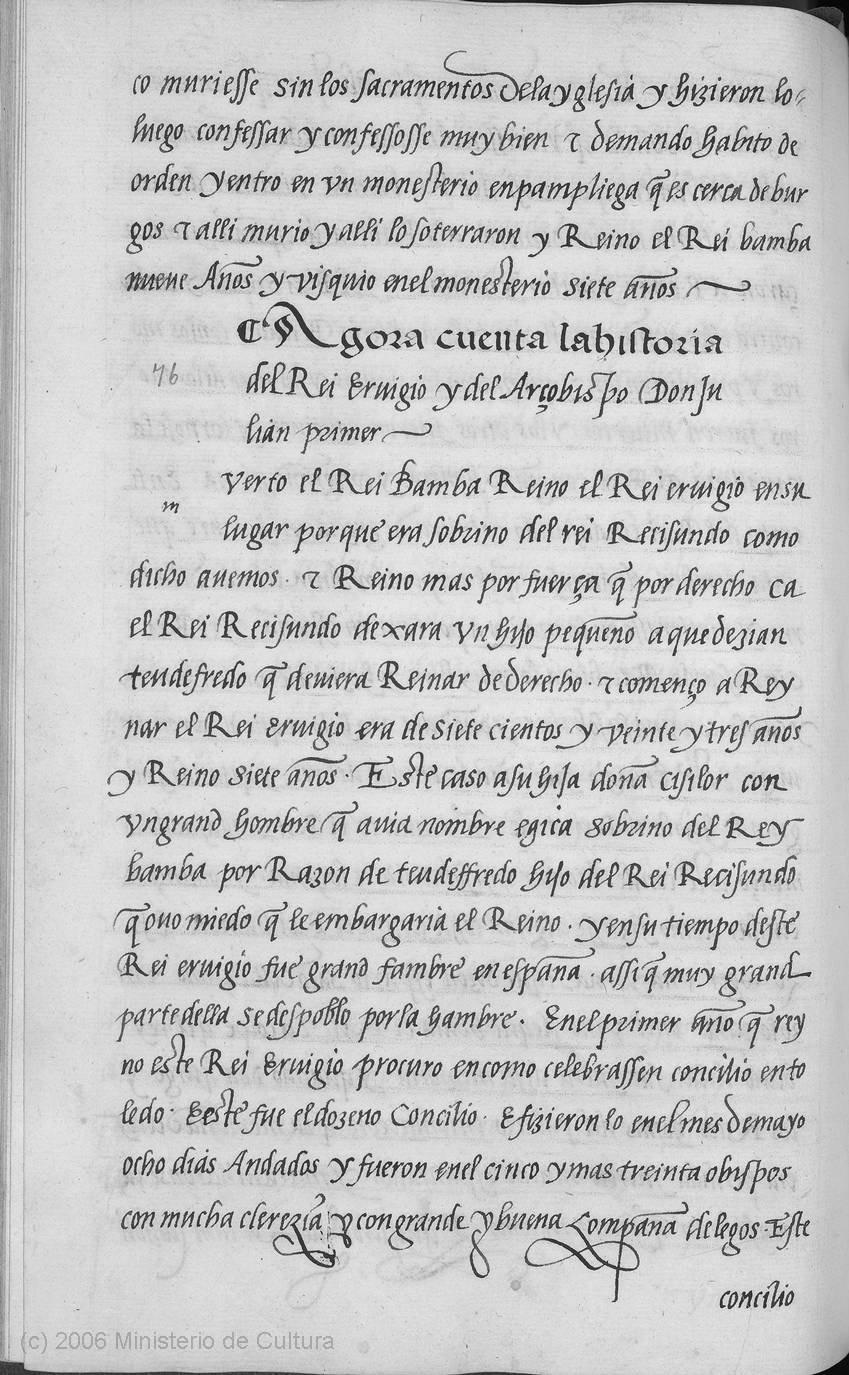 co muriesse sin los sacramentos dela yglesia y hizieron lo-
luego confessar y confessosse muy bien τ demando habito de
orden y entro en vn monesterio en pampliega q̄ es cerca de bur
gos τ alli murio y alli lo soterraron y Reino el Rei bamba
nueve Años y visquio enel monesterio siete años
¶ Agora cuenta la historia
76
del Rei Eruigio y del Arçobispo Don Ju
lian primer
verto el Rei Bamba Reino el Rei eruigio en su
m
lugar porque era sobrino del rei Recisundo como
dicho auemos · τ Reino mas por fuerça q̄ por derecho ca
el Rei Recisundo dexara vn hijo pequeño a que dezian
teudefredo q̄ deuiera Reinar de derecho · τ començo a Rey
nar el Rei Eruigio era de siete cientos y veinte y tres años
y Reino siete años · Este caso a su hija doña cisilor con
vn grand hombre q̄ auia nombre egica sobrino del Rey
bamba por Razon de teudeffredo hijo del Rei Recisundo
q̄ ouo miedo q̄ le embargaria el Reino · y en su tiempo deste
Rei eruigio fue grand fambre en españa · assi q̄ muy grand
parte della se despoblo por la hambre · Enel primer año q̄ rey
no este Rei Eruigio procuro en como celebrassen concilio en to
ledo · E este fue el dozeno Concilio · E fizieron lo enel mes de mayo
ocho dias Andados y fueron enel cinco y mas treinta obispos
con mucha clerezia y con grande y buena Compaña de legos · Este
concilio
(c) 2006 Ministerio de Cultura